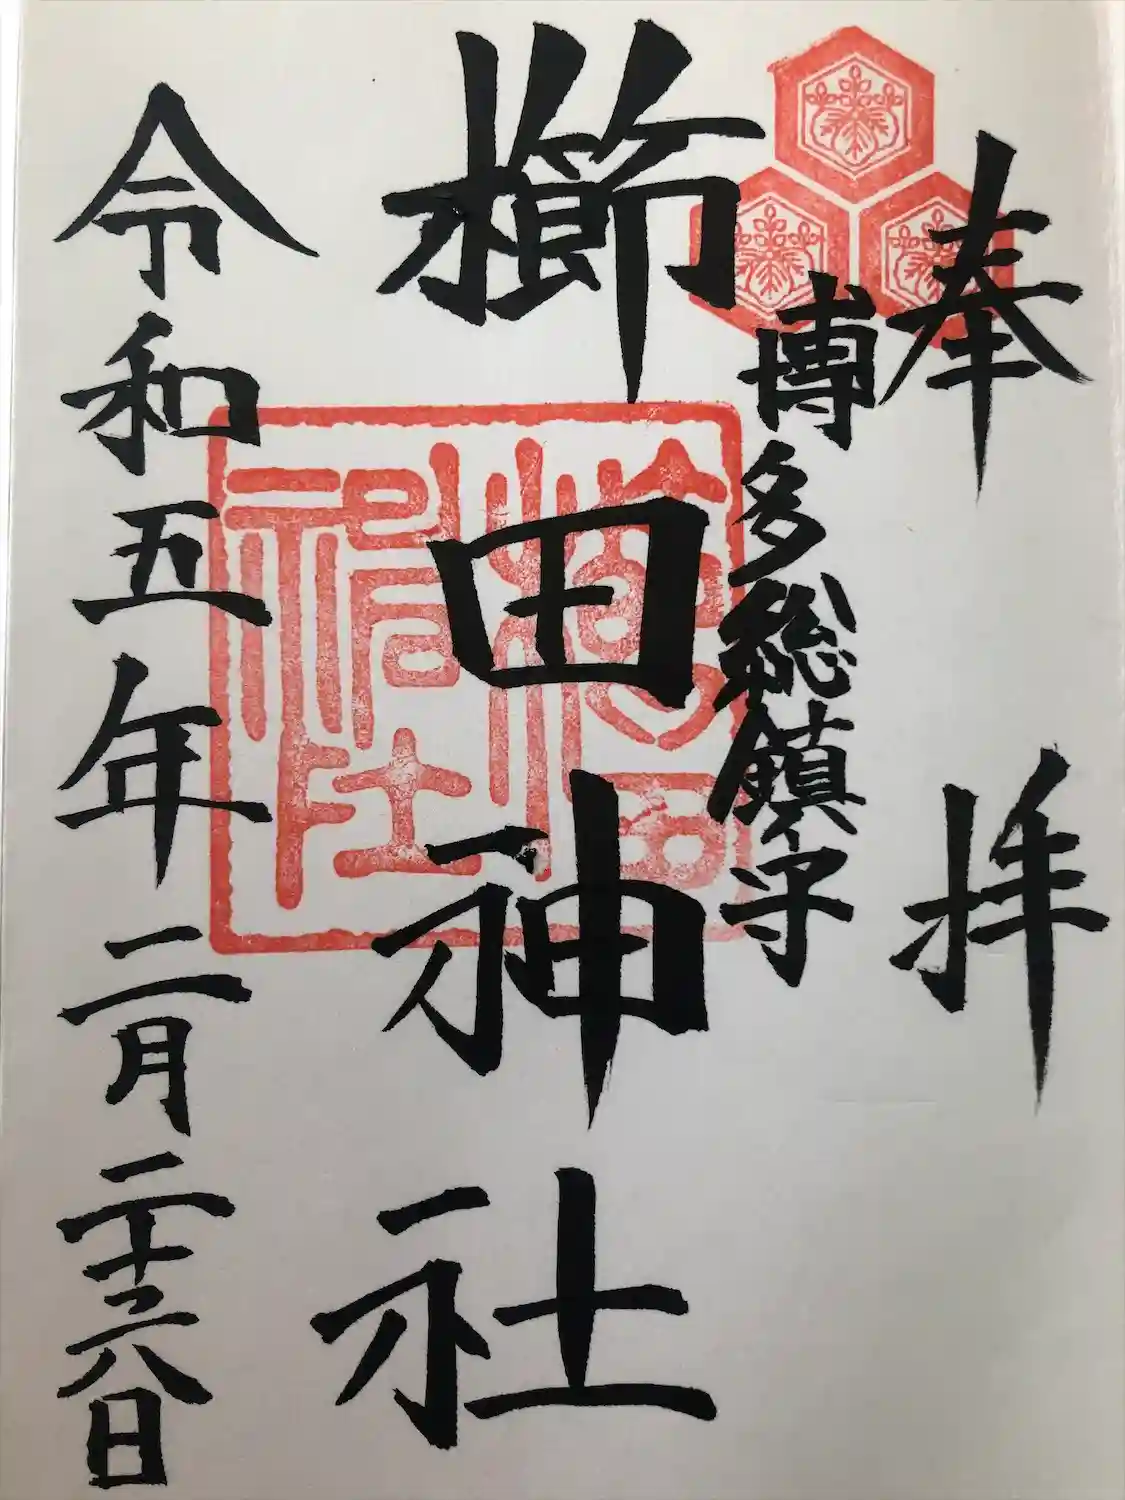 奉拝
博多総鎮守
櫛田神社
令和五年二月二十六日
櫛田神社